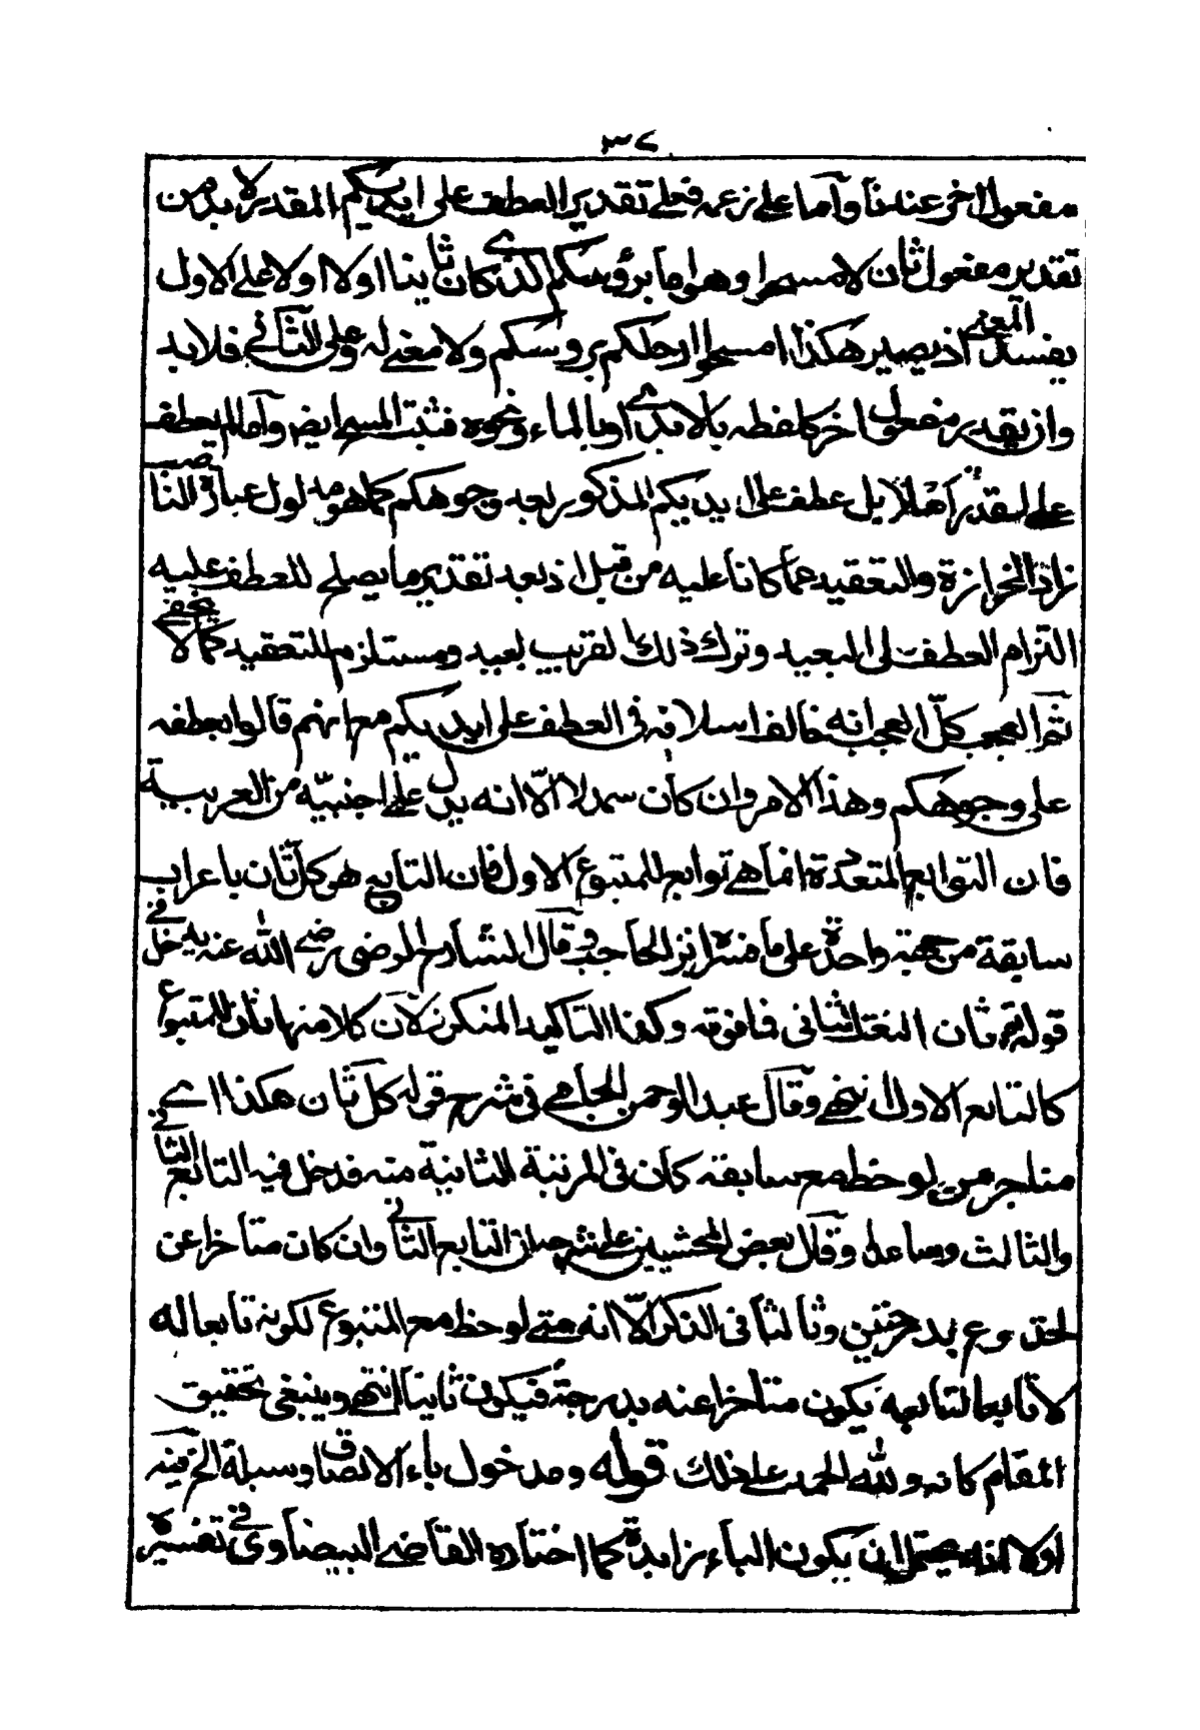 ٣٧
مفعول اخر عندنا وآما على زعمه فعلى تقدير العطف على ايديكم المقدير لا بد من
تقدير مفعول ثان لامسحوا وهو اما برؤسكم الذى كان ثانيا اولا اولا على الاول
يفسد المعنى اذ يصير هكذا امسحوا ارجلكم بروسكم ولا معنى له وعلى الثانى فلا بد
وان يقدر مفعول اخر كلفظه بالايدى او بالماء ونحوه فثبت المسح ايضا وآما لم يعطف
على المقدر اصلا بل عطف على ايديكم المذكور بعد وجوهكم كما هو مدلول عبارة الناصب
زاد الحزازة والتعقيد عما كانا عليه من قبل اذ بعد تقدير ما يصلح للعطف عليه
التزام العطف الى البعيد وترك ذلك القريب بعيد ومستلزم للتعقيد كما لا يخفى
ثم العجب كل العجب انه خالف اسلافه فى العطف على ايديكم مع انهم قالوا بعطفه
على وجوهكم وهذا الامر وان كان سهلا الّا انه يدل على اجنبيّته من العربية
فان التوابع المتعددة انما هى توابع للمتبوع الاول فان التابع هو كل ثان باعراب
سابقة من جهة واحدة على ما فسره ابن الحاجب وقال الشارح الرضى رضى الله عنه يدخل فى
قوله ثان النعت الثانى فما فوقه وكذا التاكيد المنكرر لآن كلا منها ثان للمتبوع
كالتابع الاول انتهى وقال عبد الرحمن الجامى فى شرح قوله كل ثان هكذا اى
متاخر متى لوحظ مع سابقه كان فى المرتبة الثانية منه فدخل فيه التابع الثانى
والثالث وصاعدا وقال بعض المحشيين على شرحه ان التابع الثانى وان كان متاخرا عن
المتبوع بدرجتين وثالثا فى الذكر الّا انه متى لوحظ مع المتبوع لكونه تابعا له
لا تابعا لتابعه يكون متاخرا عنه بدرجة فيكون ثانيا انتهى وينبغى تحقيق
المقام كانه ولله الحمد على ذلك قوله ومدخول باء الالصاق وسيلة الخ فيه
اولا انه يحتمل ان يكون الباء زايدة كما اختاره القاضى البيضاوى فى تفسيره